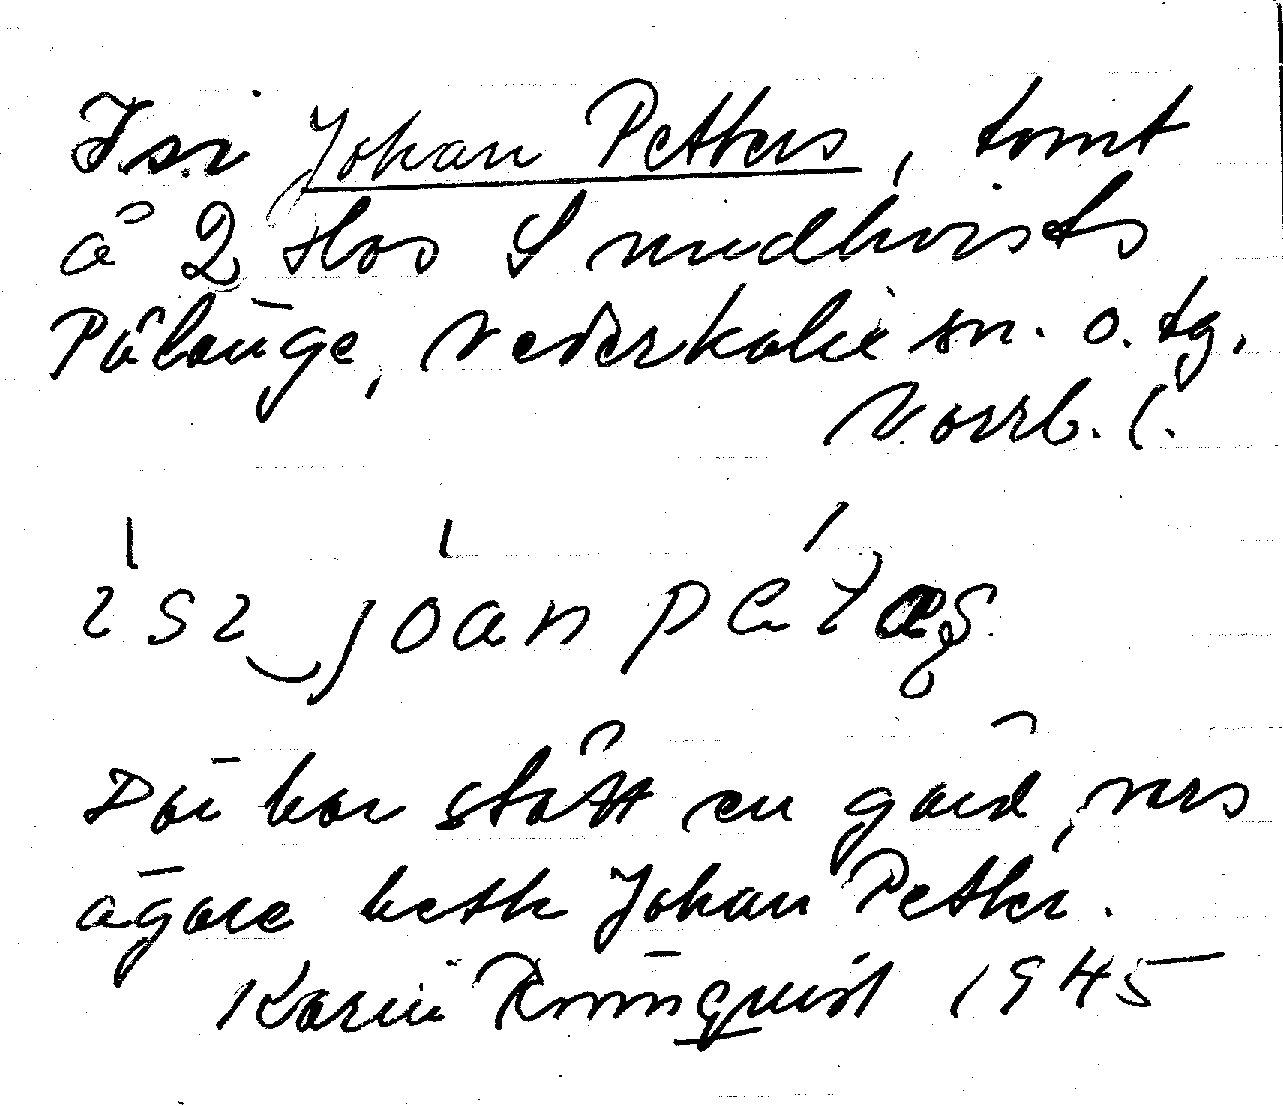 Isi Johan Petters, tomt
å 2 Hos Lundkvists
Pålänge, Nederkalix sn. o. tg.
Norrb. l.
ısı‿jóan pétæş
Där har stått en gård, vars
ägare hette Johan Petter.
Karin Rönnquist 1945